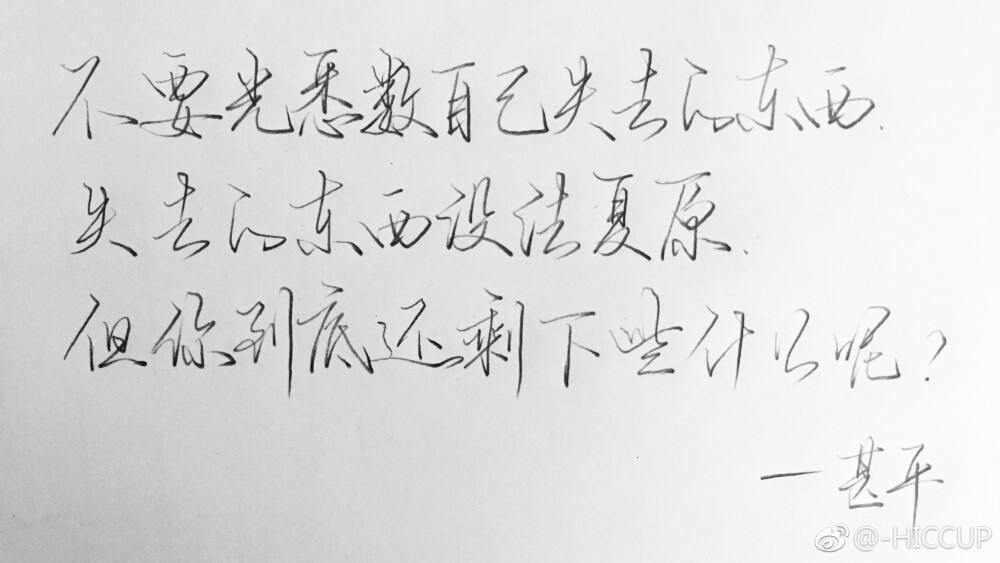 不要光悉数自己失去的东西.
失去的东西设法复原.
但你到底还剩下些什么呢?
一甚平
@-HICCUP